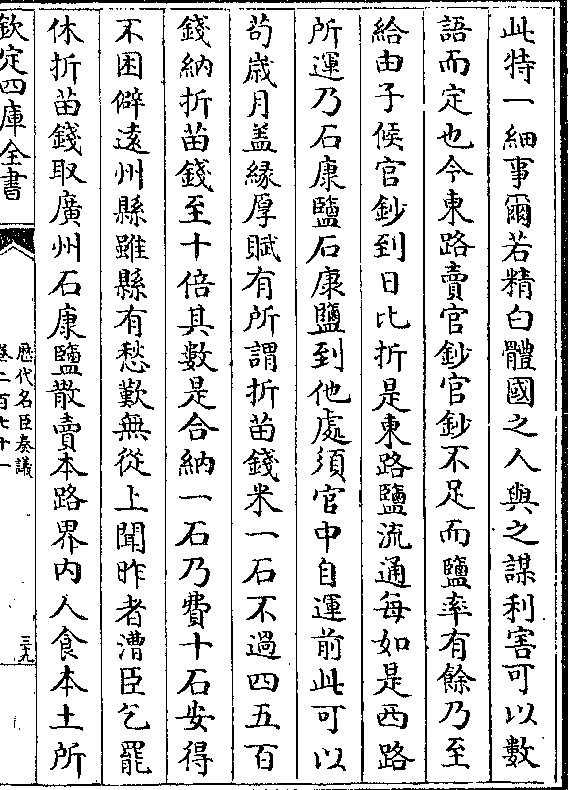 此特一細事爾若精白體國之人與之謀利害可以數
語而定也今東路賣官鈔官鈔不足而鹽率有餘乃至
給由子候官鈔到日比折是東路鹽流通每如是西路
所運乃石康鹽石康鹽到他處須官中自運前此可以
茍嵗月盖緣厚賦有所謂折苗錢米一石不過四五百
錢納折苗錢至十倍其數是合納一石乃費十石安得
不困僻遠州縣雖縣有愁歎無從上聞昨者漕臣乞罷
休折苗錢取廣州石康鹽散賣本路界内人食本土所
欽定四庫全書
歴代名臣奏議
卷二百七十一
三九